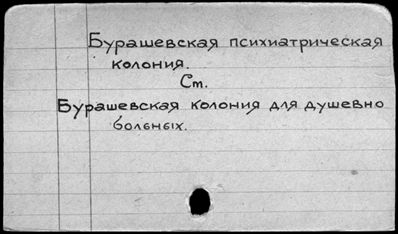 Бурашевская психиатрическая
колония.
Ст.
Бурашевская колония для душевно
больных.